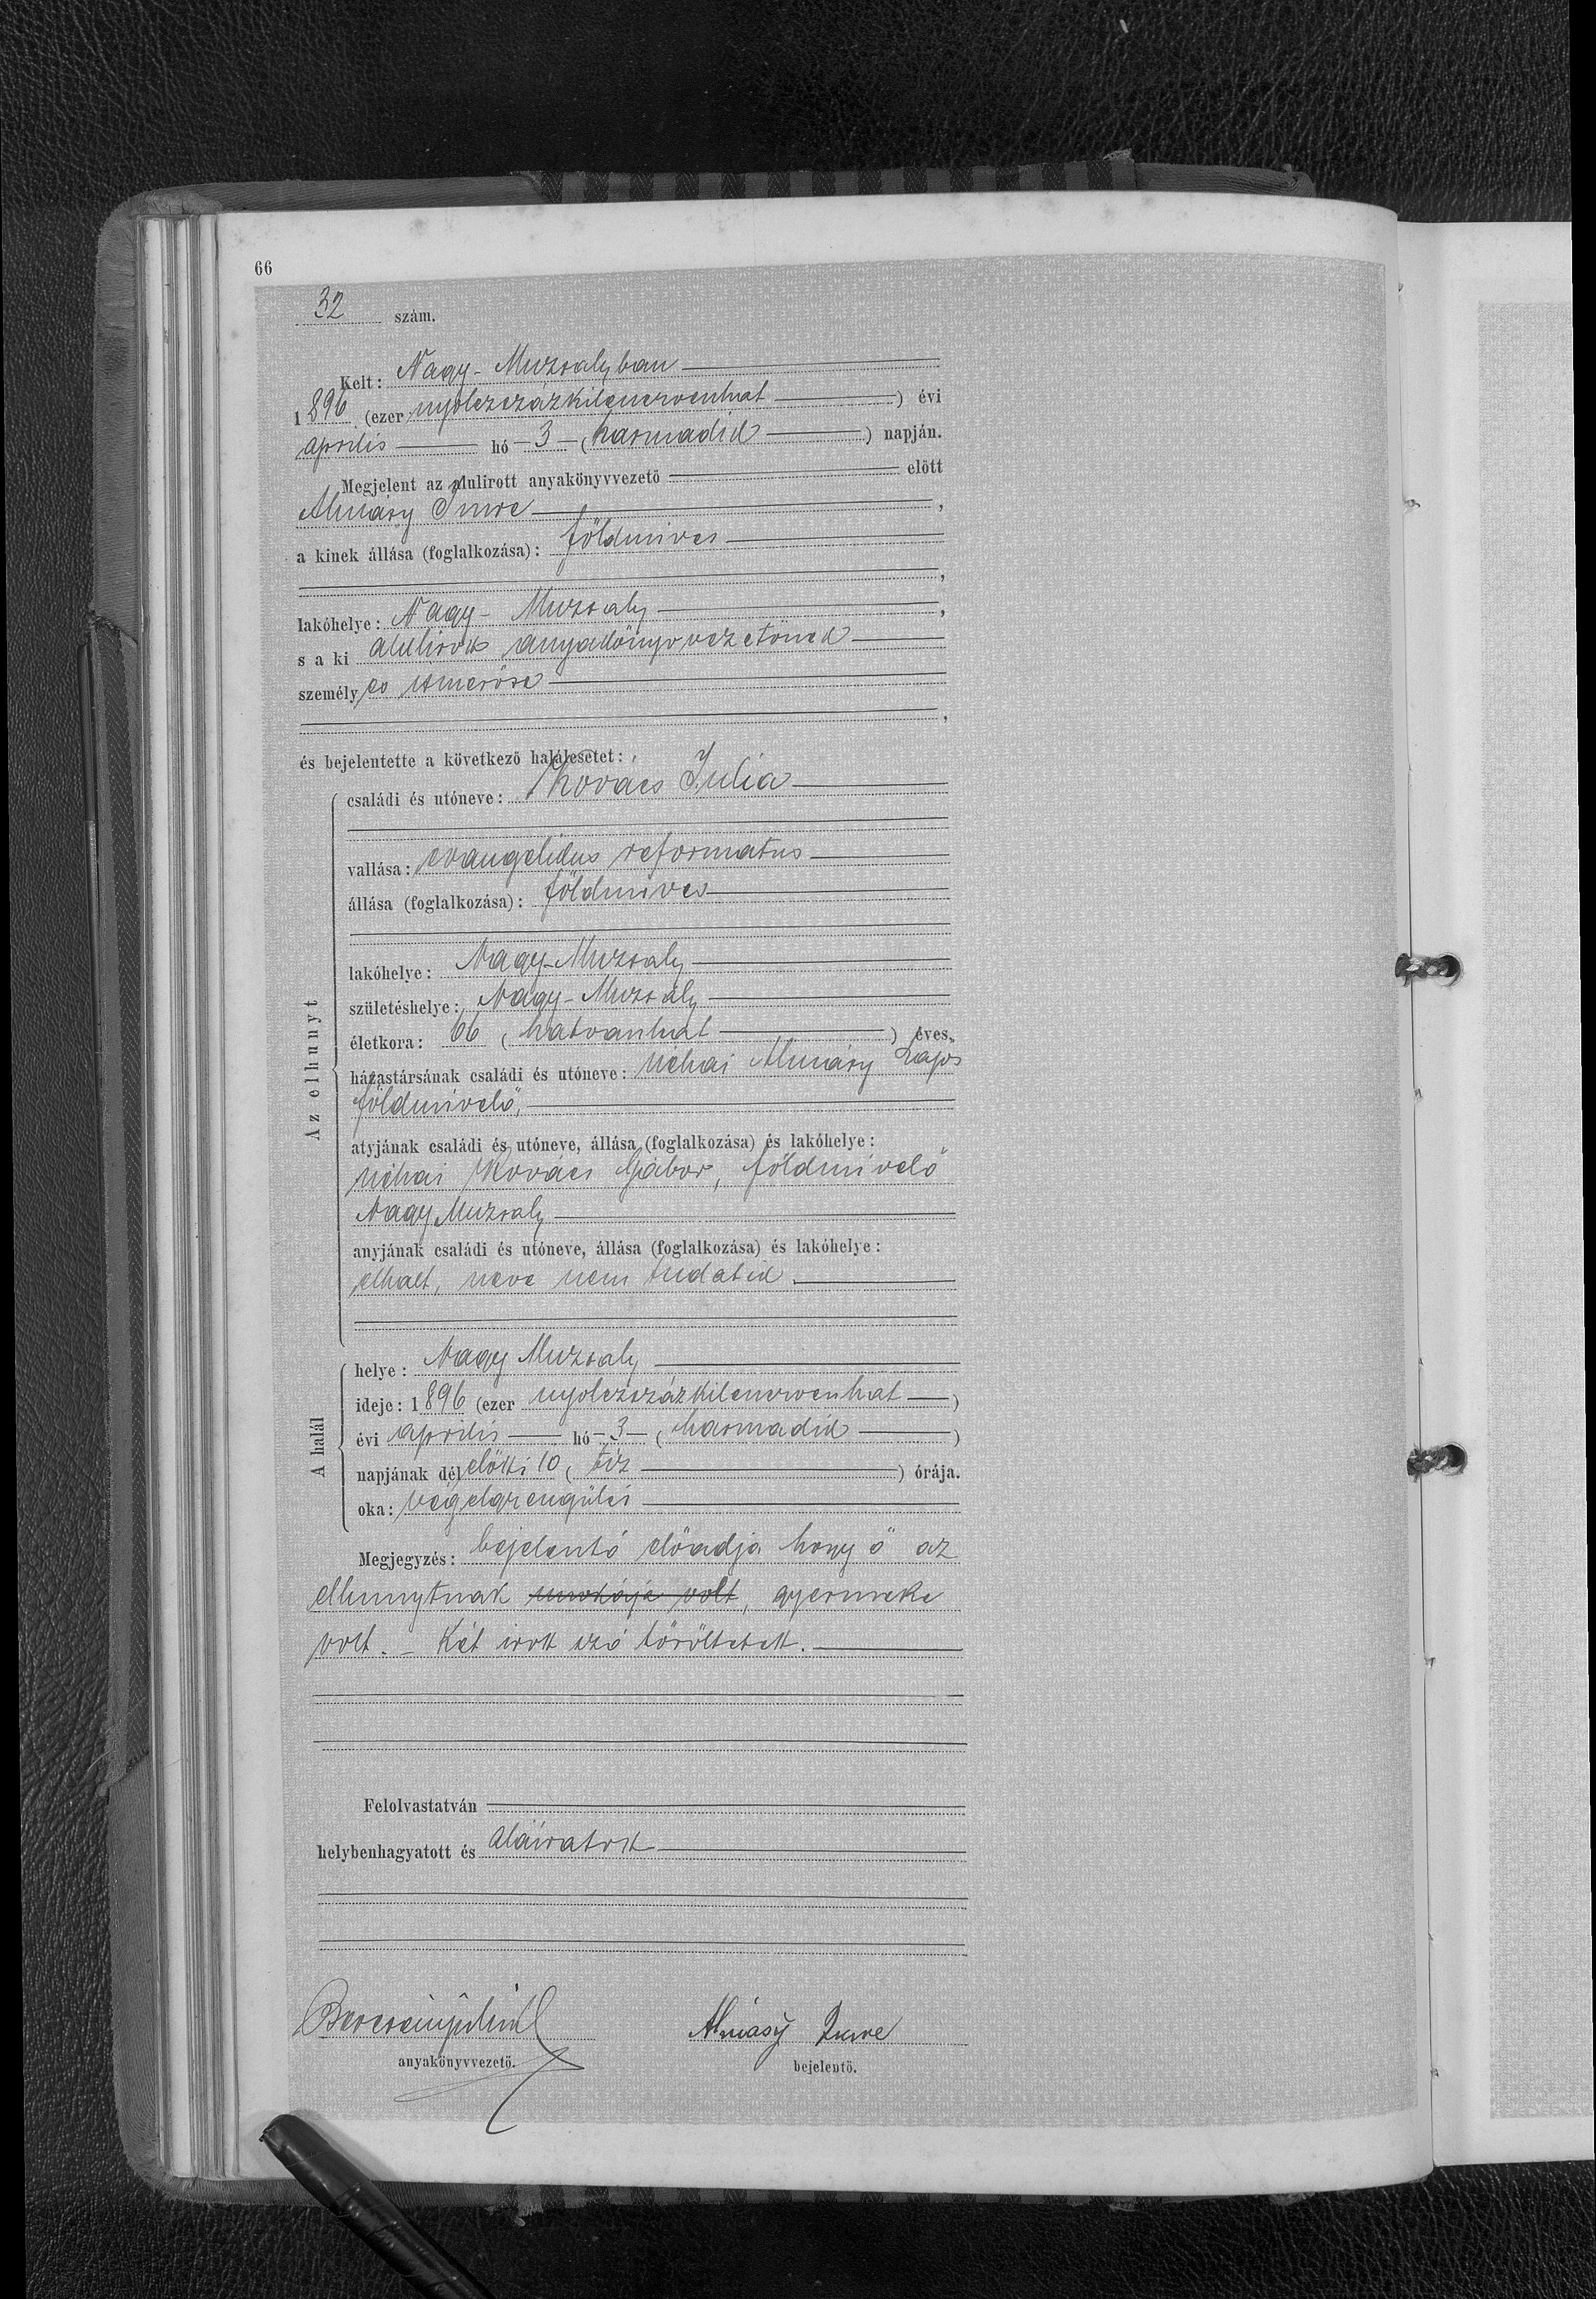 66
32 szám.
Kelt: Nagy-Muzsalyban
1896 (ezer nyolczszázkilenczvenhat) évi
április hó 3 (harmadik) napján.
Megjelent az alulirott anyakönyvvezető előtt
Almásy Imre,
a kinek állása (foglalkozása): földmives
,
lakóhelye: Nagy-Muzsaly,
s a ki alulirott anyakönyvvezetőnek
személyes ismerőse
,
és bejelentette a következő halálesetet:
családi és utóneve: Kovács Julia
vallása: evangelikus reformatus
állása (foglalkozása): földmives
lakóhelye: Nagy-Muzsaly
születéshelye: Nagy-Muzsaly
életkora: 66 (hatvanhat) éves.
házastársának családi és utóneve: néhai Almásy Lajos
földmivelő,
atyjának családi és utóneve, állása (foglalkozása) és lakóhelye:
néhai Kovács Gábor, földmivelő
Nagy Muzsaly
anyjának családi és utóneve, állása (foglalkozása) és lakóhelye:
elhalt, neve nem tudatik.
Az elhunyt
helye: Nagy Muzsaly
ideje: 1896 (ezer nyolczszázkilenczvenhat)
évi április hó 3 (harmadik)
napjának délelőtti 10 (tiz) órája.
oka: végelgyengülés
A halál
Megjegyzés: bejelentő előadja hogy ő az
elhunytnak unokája volt, gyermeke
volt. - Két irott szó töröltetett.
Felolvastatván
helybenhagyatott és aláiratott
Almásy Imre
anyakönyvvezető.
bejelentő.